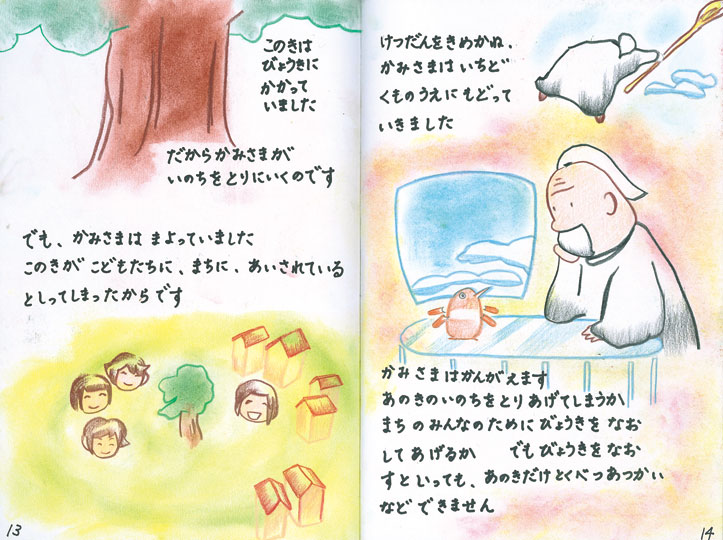 このきは
びょうきに
かかって
いました
だからかみさまが
いのちをとりにいくのです
でも、かみさまは まよっていました
このきが こどもたちに、まちに、あいされている
としってしまったからです
13
けつだんをきめかね、
かみさまは いちど
くものうえに もどって
いきました
かみさまはかんがえます
あのきのいのちをとりあげてしまうか
まちのみんなのためにびょうきをなお
してあげるか　でもびょうきをなお
すといっても、あのきだけとくべつあつかい
などできません
14